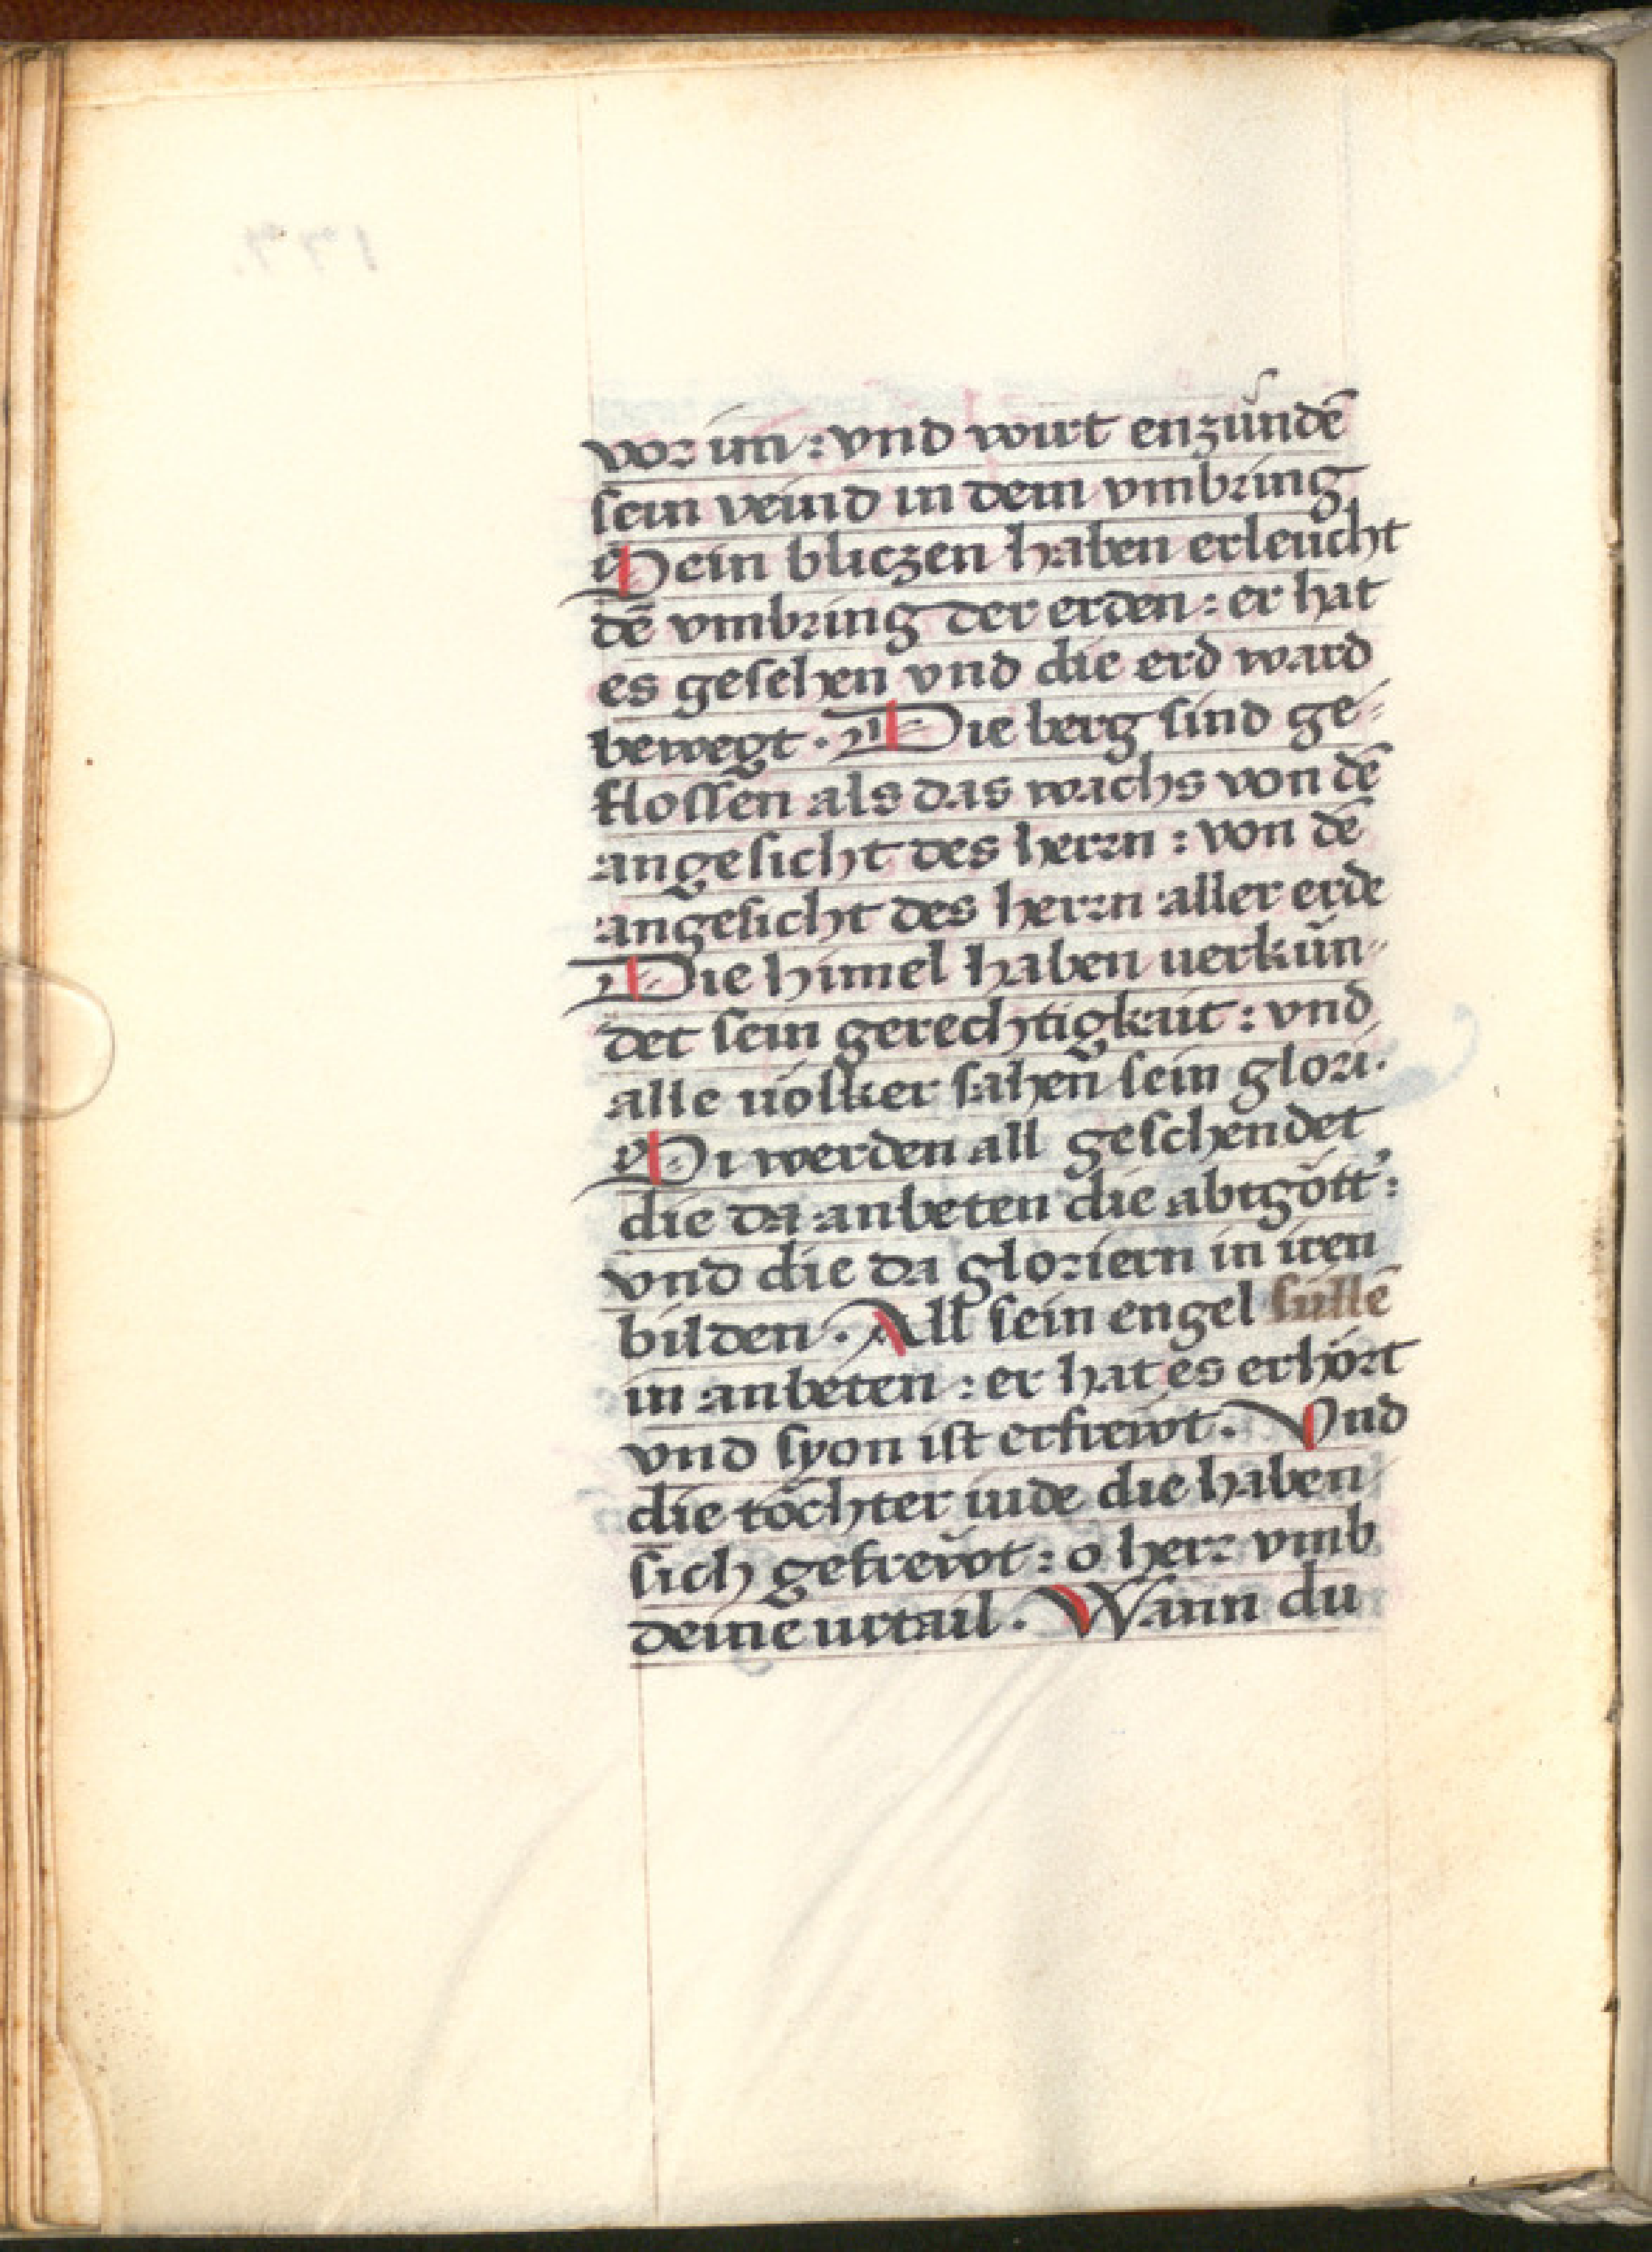 vor im : vnd wirt enzündē
sein veind in dem vmbring
Sein bliczen haben erleucht
dē vmbring der erden : er hat
es gesehen vnd die erd ward
bewegt . Die berg sind ge-
flossen als das wachs von dē
angesicht des herrn : von dē
angesicht des herrn aller erde
Die himel haben uerkün-
det sein gerechtigkait : vnd
alle uölker sahen sein glori .
Si werden all geschendet
die da anbeten die abtgött :
vnd die da gloriern in iren
bilden . All sein engel süllē
in anbeten : er hat es erhört
vnd syon ist erfrewt . Vnd
die töchter iude die haben
sich gefrewt : o herr vmb
deine urtail . Wann du